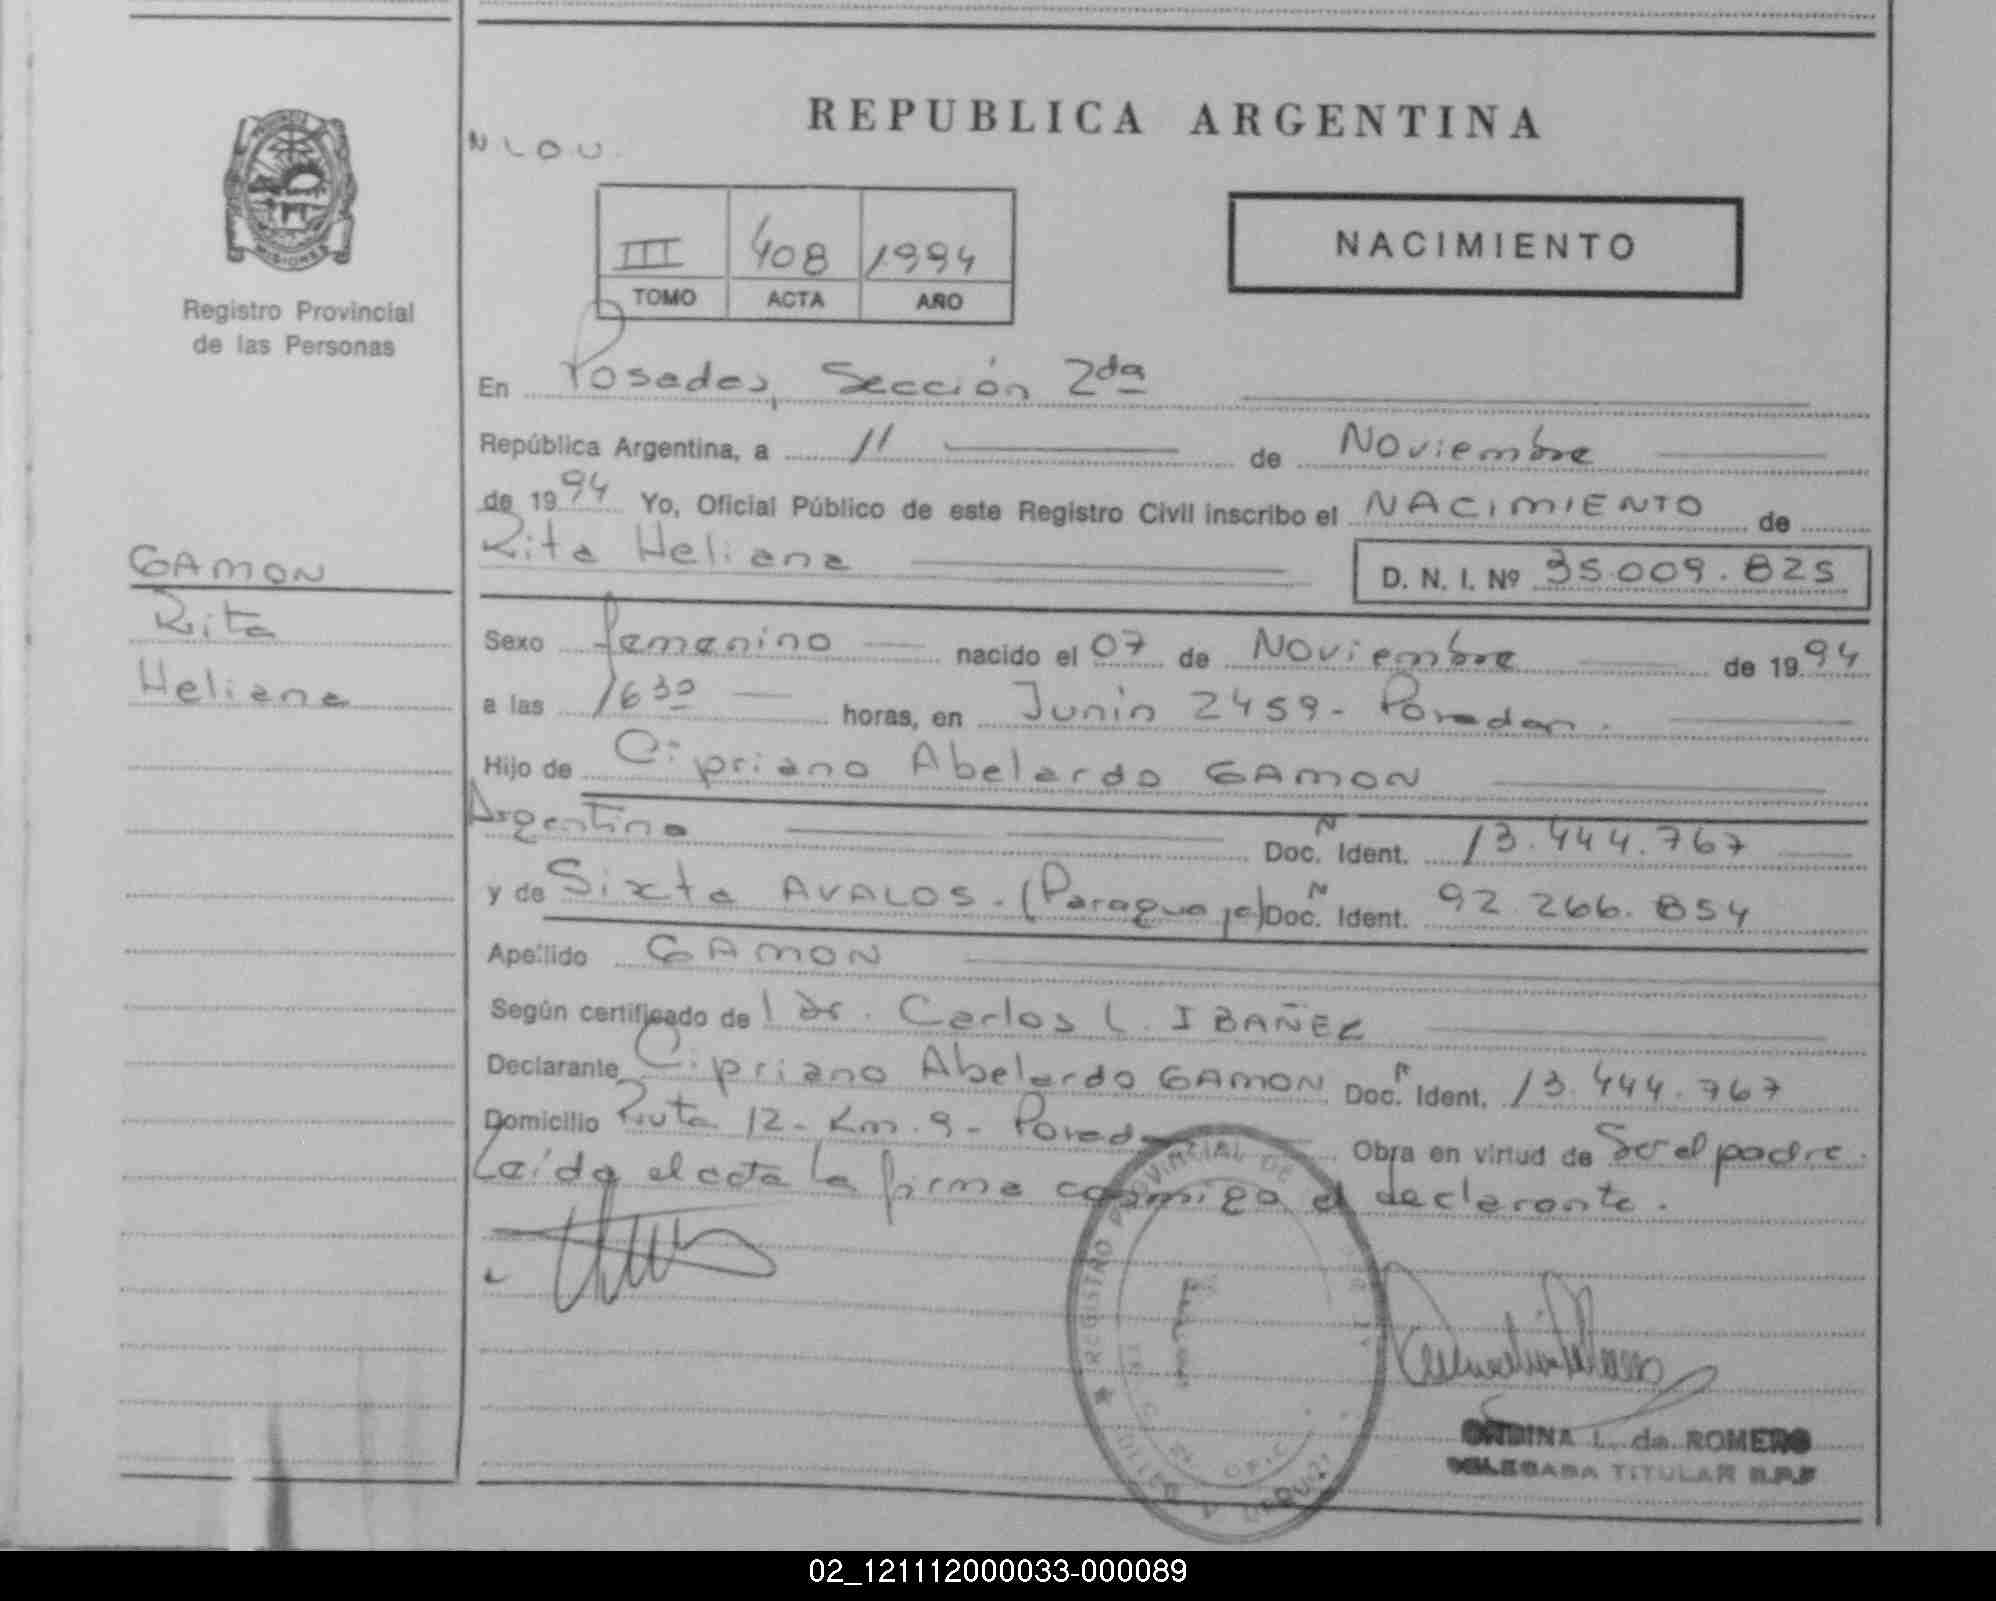 REPUBLICA ARGENTINA
NLOU.
III 408 1994
TOMO ACTA AÑO
NACIMIENTO
MISIONES
Registro Provincial
de las Personas
En Posadas, Sección 2da
República Argentina, a 11 de Noviembre
de 1994 Yo, Oficial Público de este Registro Civil inscribo el NACIMIENTO de
Rita Heliana D. N. I. Nº 35.009.825
GAMON
Rita
Heliana
Sexo femenino nacido el 07 de Noviembre de 1994
a las 1630 horas, en Junin 2459- Posadas.
Hijo de Cipriano Abelardo GAMON
Argentino Doc. N Ident. 13.444.767
y de Sixta AVALOS. (Paraguaya) Doc. N Ident. 92.266.854
Apellido GAMON
Según certificado del Dr. Carlos L. IBAÑEZ
Declarante Cipriano Abelardo GAMON Doc. N Ident. 13.444.767
Domicilio Ruta 12- Km. 9- Posadas Obra en virtud de Ser el padre.
Leída el acta la firma conmigo el declarante.
REGISTRO PROVINCIAL DE
ONDINA L. de ROMERO
DELEGADA TITULAR R.P.P
02_121112000033-000089